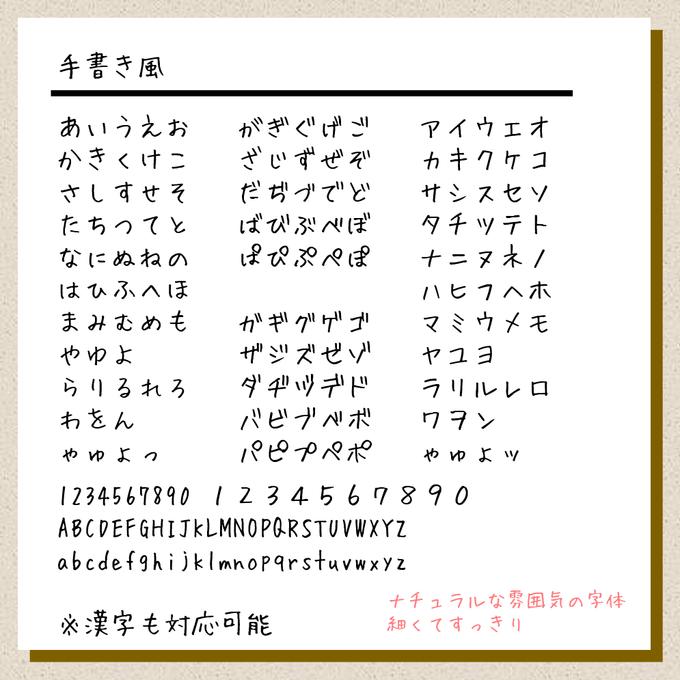 手書き風
あいうえお がぎぐげご アイウエオ
かきくけこ ざじずぜぞ カキクケコ
さしすせそ だぢづでど サシスセソ
たちつてと ばびぶべぼ タチツテト
なにぬねの ぱぴぷぺぽ ナニヌネノ
はひふへほ ハヒフヘホ
まみむめも ガギグゲゴ マミウメモ
やゆよ ザジズゼゾ ヤユヨ
らりるれろ ダヂヅデド ラリルレロ
わをん バビブベボ ワヲン
ゃゅょっ パピプペポ ゃゅょッ
1234567890 1234567890
ABCDEFGHIJKLMNOPQRSTUVWXYZ
abcdefghijklmnopqrstuvwxyz
ナチュラルな雰囲気の字体
細くてすっきり
※漢字も対応可能